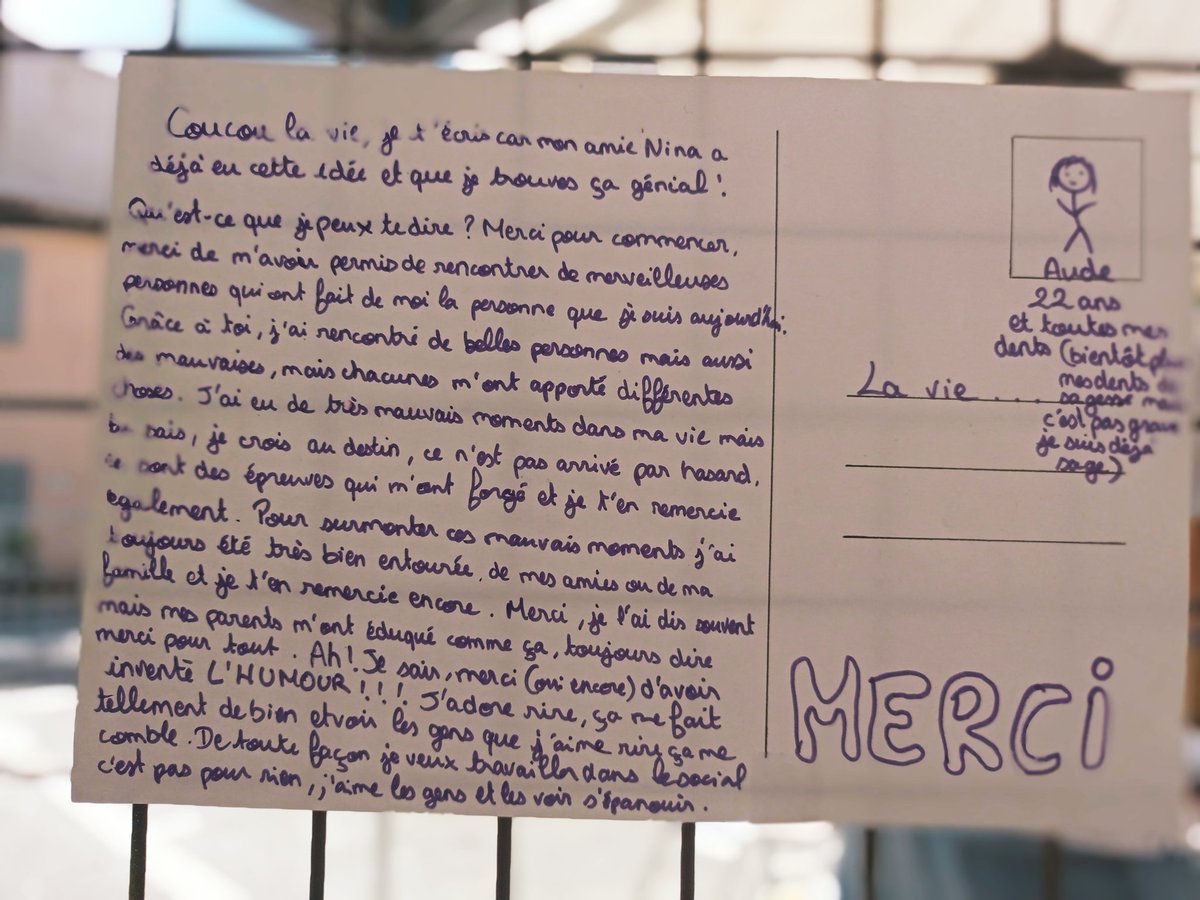 Coucou la vie, je t'écris car mon amie Nina a
déjà eu cette idée et que je trouves ça génial !
Qu'est-ce que je peux te dire ? Merci pour commencer,
merci de m'avoir permis de rencontrer de merveilleuses
personnes qui ont fait de moi la personne que je suis aujourd'hui.
Grâce à toi, j'ai rencontré de belles personnes mais aussi
des mauvaises, mais chacunes m'ont apporté différentes
choses. J'ai eu de très mauvais moments dans ma vie mais
tu sais, je crois au destin, ce n'est pas arrivé par hasard,
ce sont des épreuves qui m'ont forgé et je t'en remercie
également. Pour surmonter ces mauvais moments j'ai
toujours été très bien entourée, de mes amies ou de ma
famille et je t'en remercie encore. Merci, je l'ai dis souvent
mais mes parents m'ont éduqué comme ça, toujours dire
merci pour tout. Ah ! Je sais, merci (oui encore) d'avoir
inventé L'HUMOUR ! ! ! J'adore rire, ça me fait
tellement de bien et voir les gens que j'aime rire, ça me
comble. De toute façon je veux travailler dans le social
c'est pas pour rien, j'aime les gens et les voir s'épanouir.
Aude
22 ans
et toutes mes
dents (bientôt plus
mes dents de
sagesse mais
c'est pas grave
je suis déjà
sage)
La vie ....
MERCi